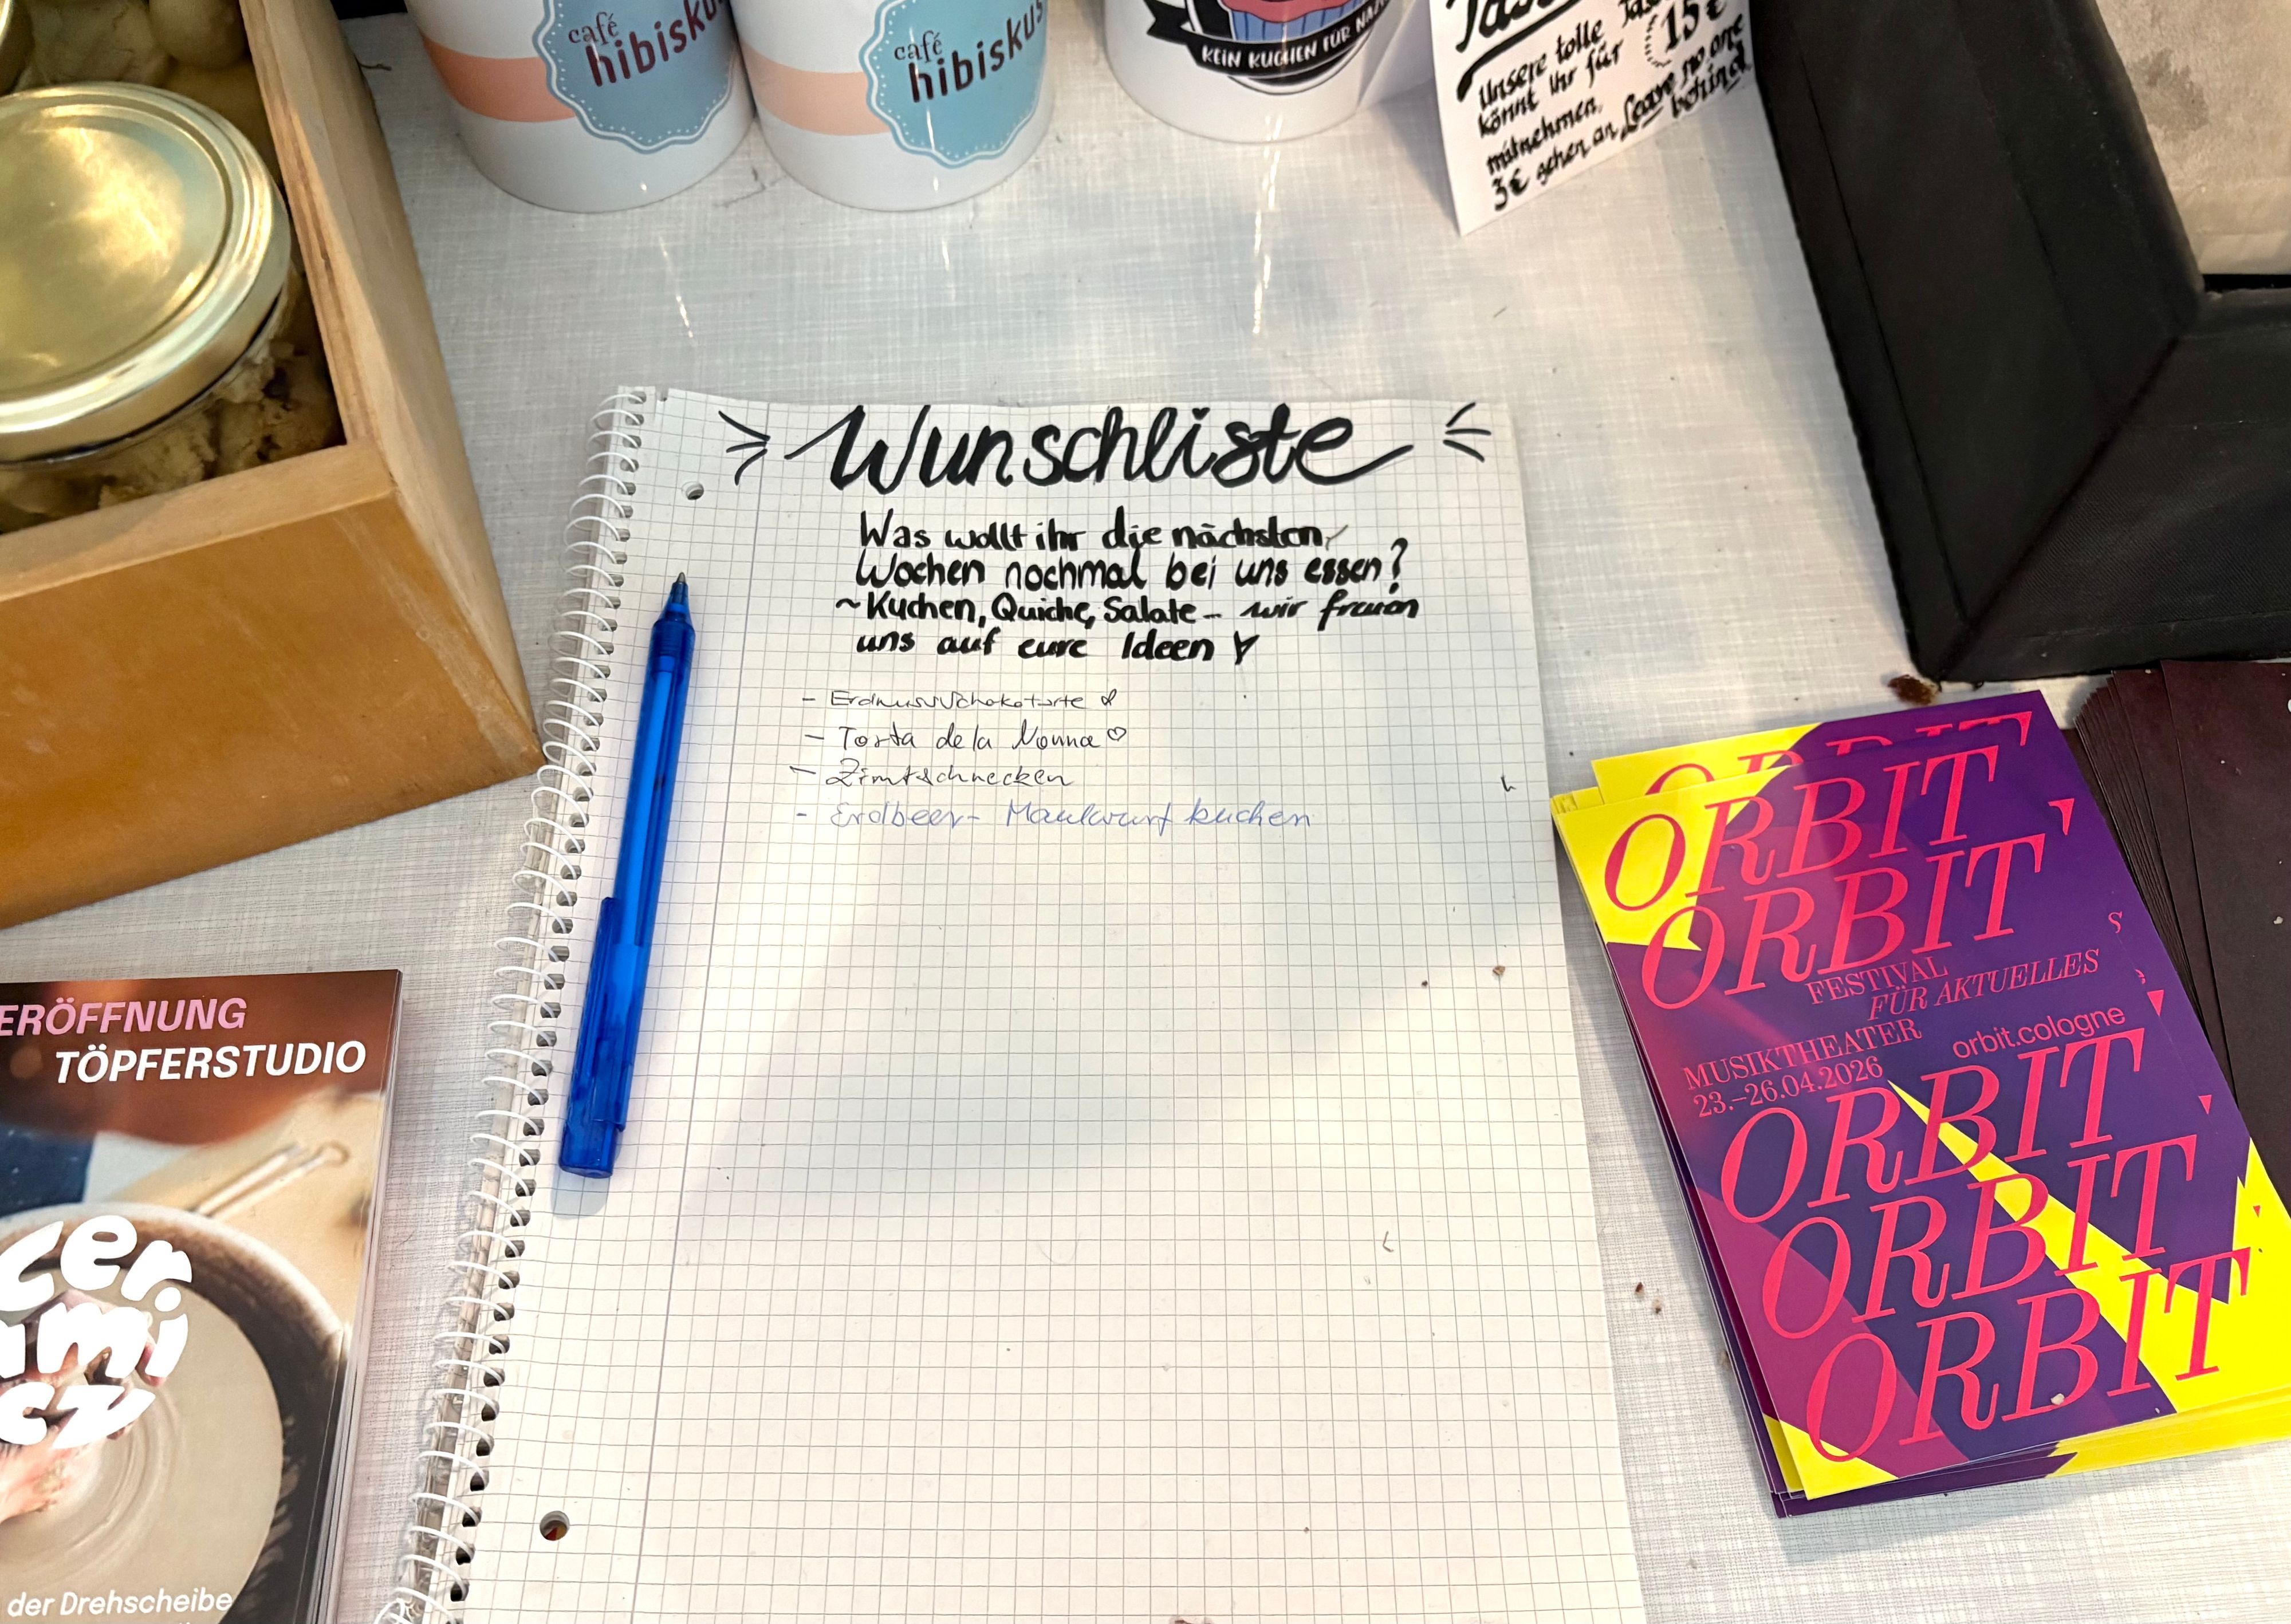 café
hibisku
café
hibiskus
KEIN KUCHEN FÜR NAZ
Unsere tolle
könnt ihr für 15€
mitnehmen.
3€ gehen an Leave no one
behind
Wunschliste
Was wollt ihr die nächsten
Wochen nochmal bei uns essen?
~Kuchen, Quiche, Salate - wir freuen
uns auf eure Ideen
- Erdnussschokotorte
- Torta de la Nonna ♡
- Zimtschnecken
- Erdbeer- Maulwurfkuchen
ERÖFFNUNG
TÖPFERSTUDIO
cer
ami
cz
der Drehscheibe
ORBIT
ORBIT
ORBIT
FESTIVAL
FÜR AKTUELLES
MUSIKTHEATER
23.–26.04.2026
orbit.cologne
ORBIT
ORBIT
ORBIT